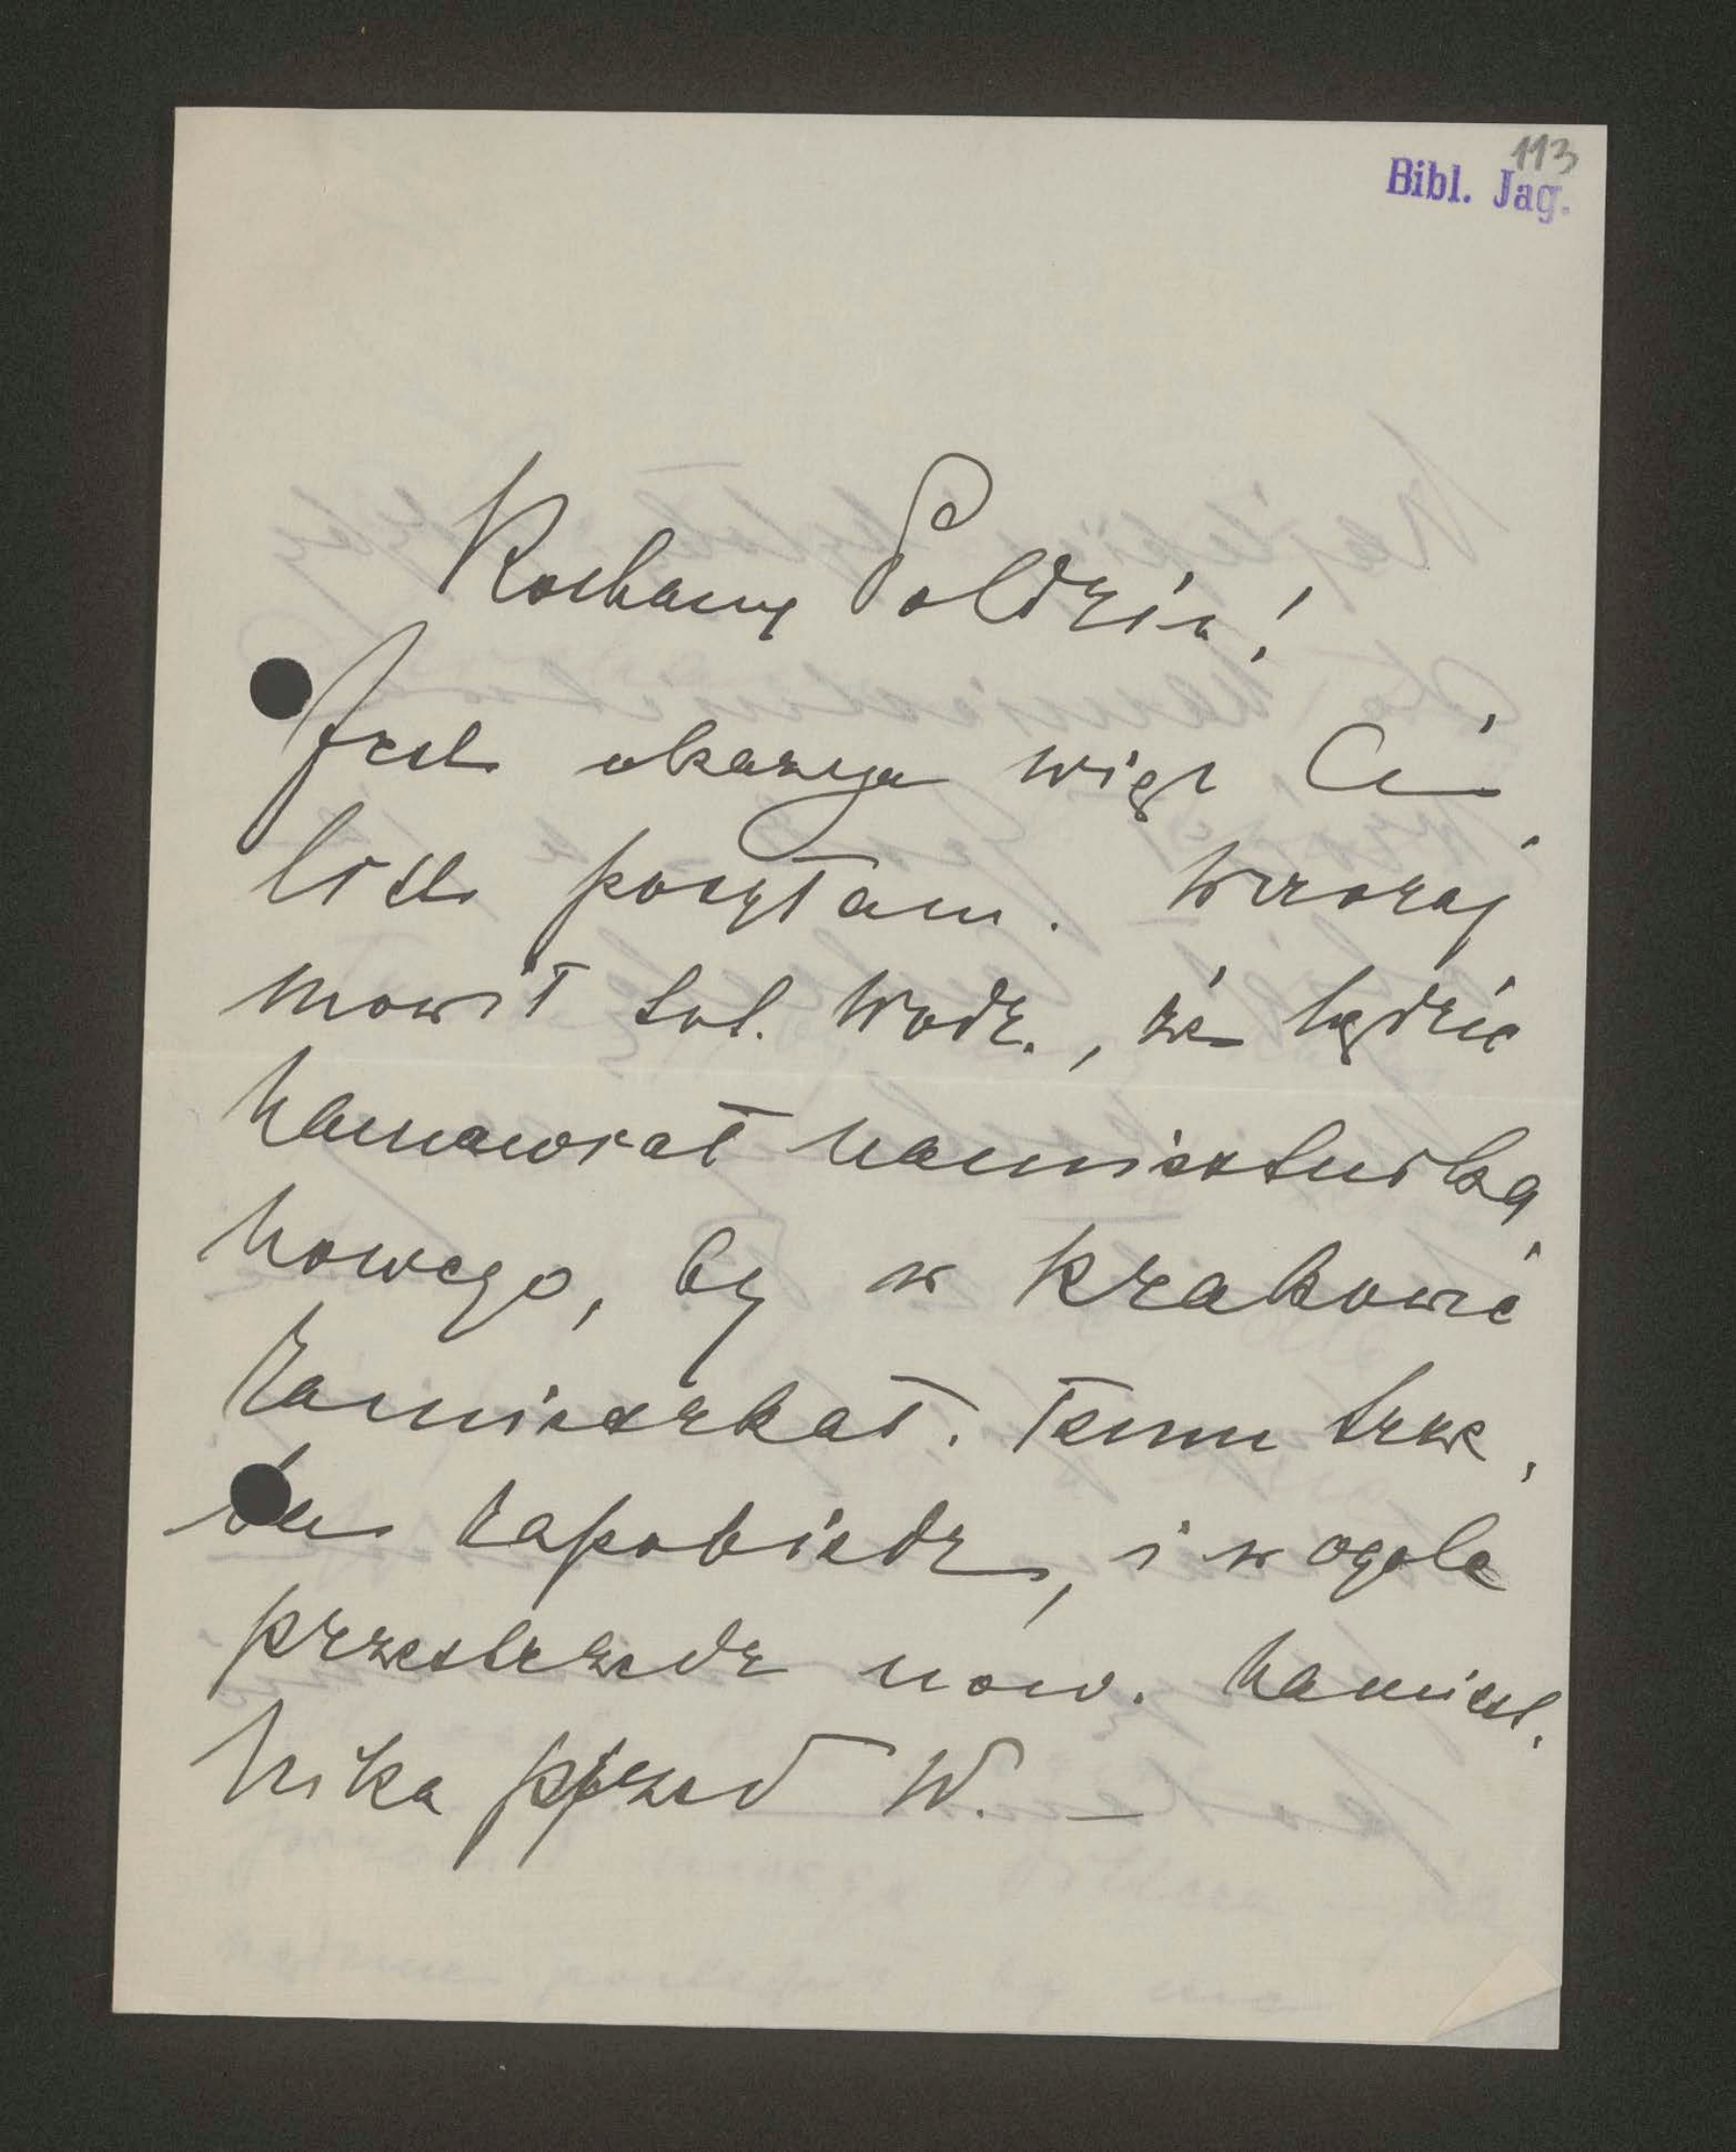 113
Bibl. Jag.
Kochany Poldziu!
Jest okazya więc Ci
list posyłam. Wczoraj
mówił Wodz., że będzie
namawiał namiestnika
nowego, by w Krakowie
zamieszkał. Temu trze,
ba zapobiedz, i w ogóle
przestrzedz now. namiest.
nika przed W. —